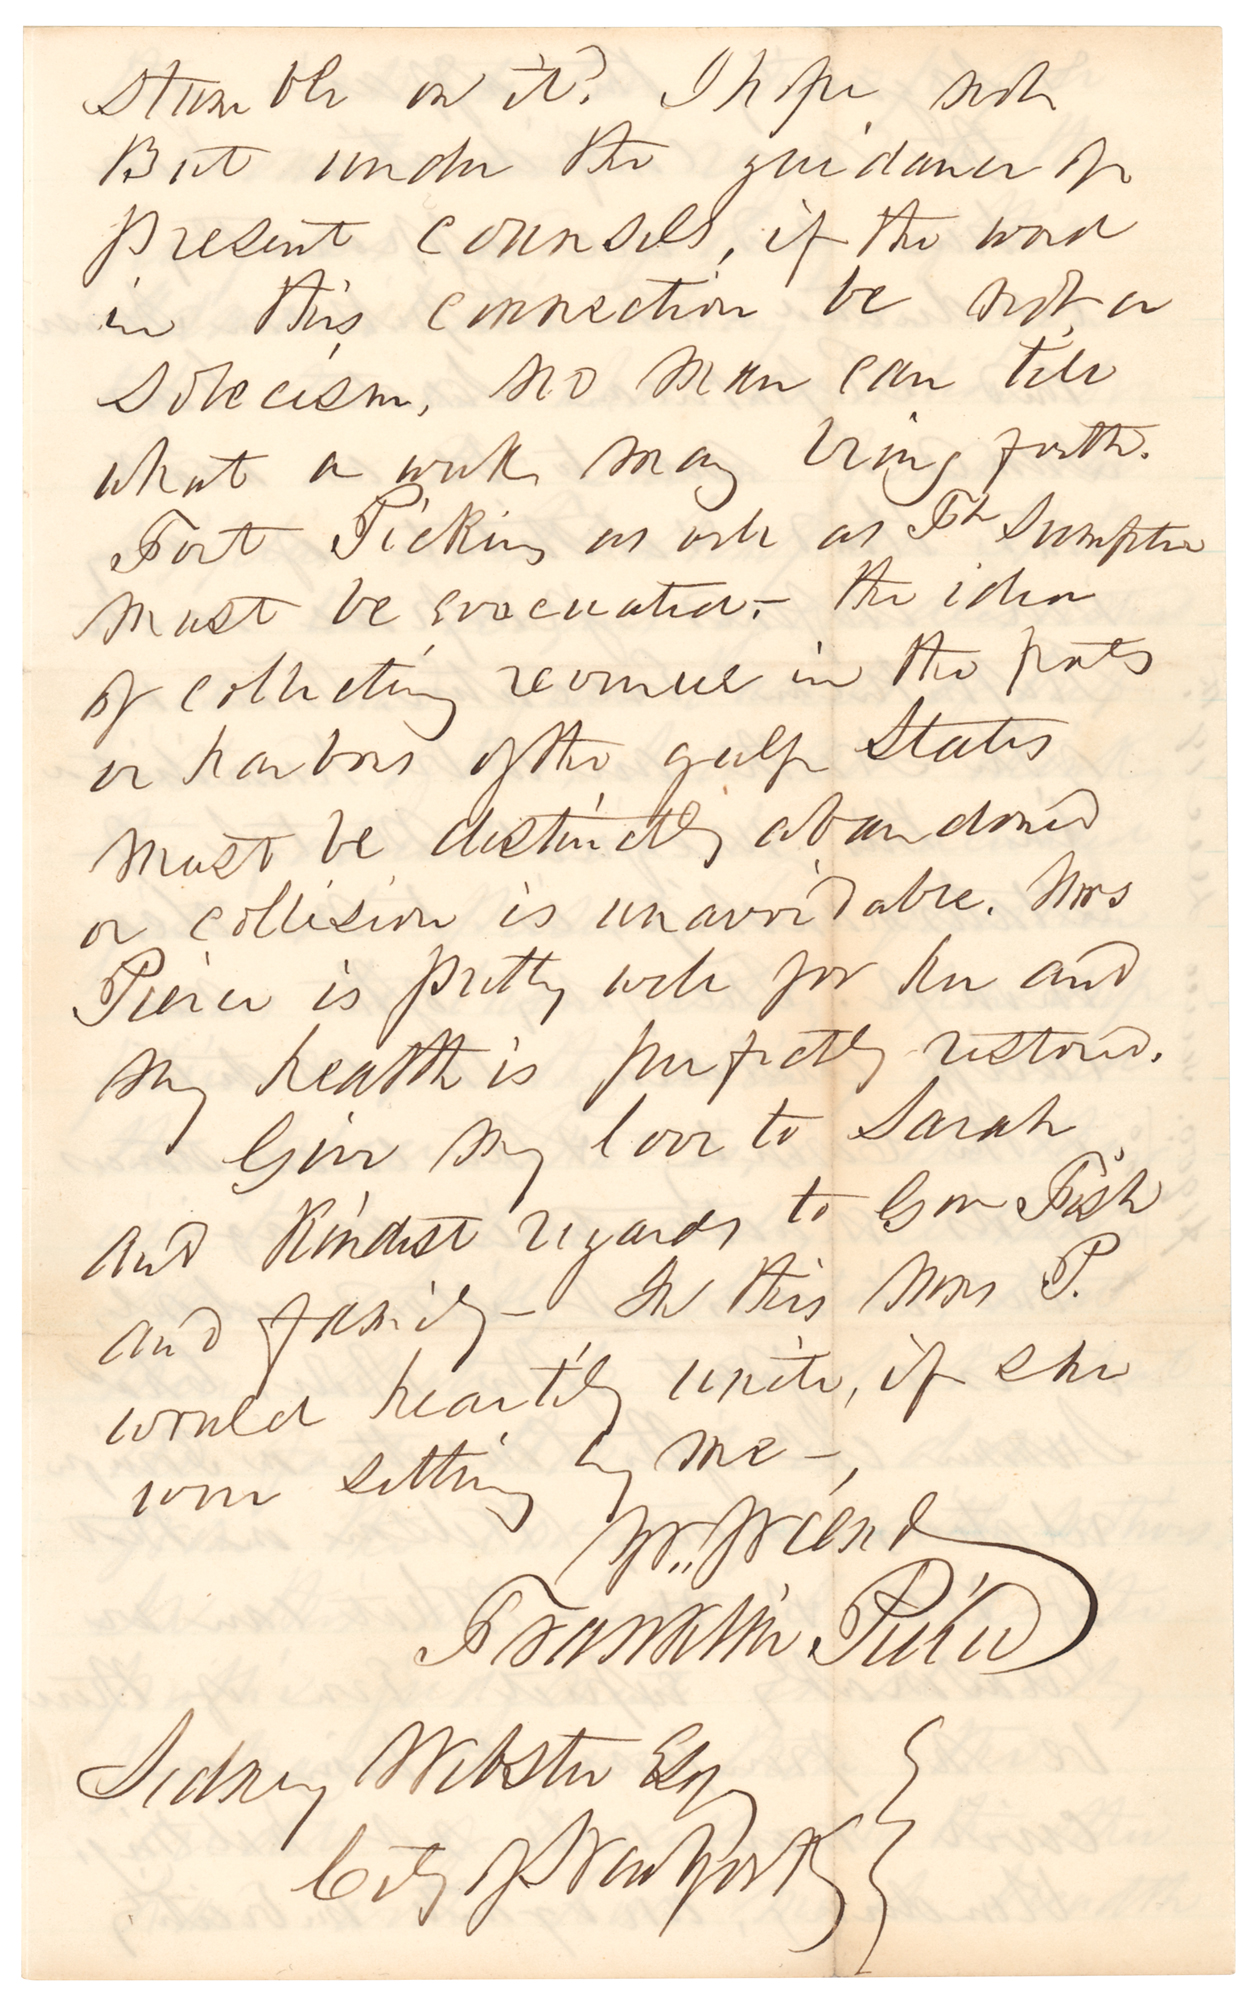 stumble on it? I hope not
But under the guidance of
present counsels, if the word
in this connection be not a
solecism, no man can tell
what a week may bring forth.
Fort Pickins as well as Ft Sumpter
must be evacuated – the idea
of collecting revenue in the ports
or harbors of the gulf States
must be distinctly abandoned
or collision is unavoidable. Mrs
Pierce is pretty well for her and
my health is perfectly restored.
Give my love to Sarah
and kindest regards to Gov Fish
and family – In this Mrs P.
would heartily unite, if she
were sitting by me –,
Yr. friend
Franklin Pierce
Sidney Webster Esq
City of New York